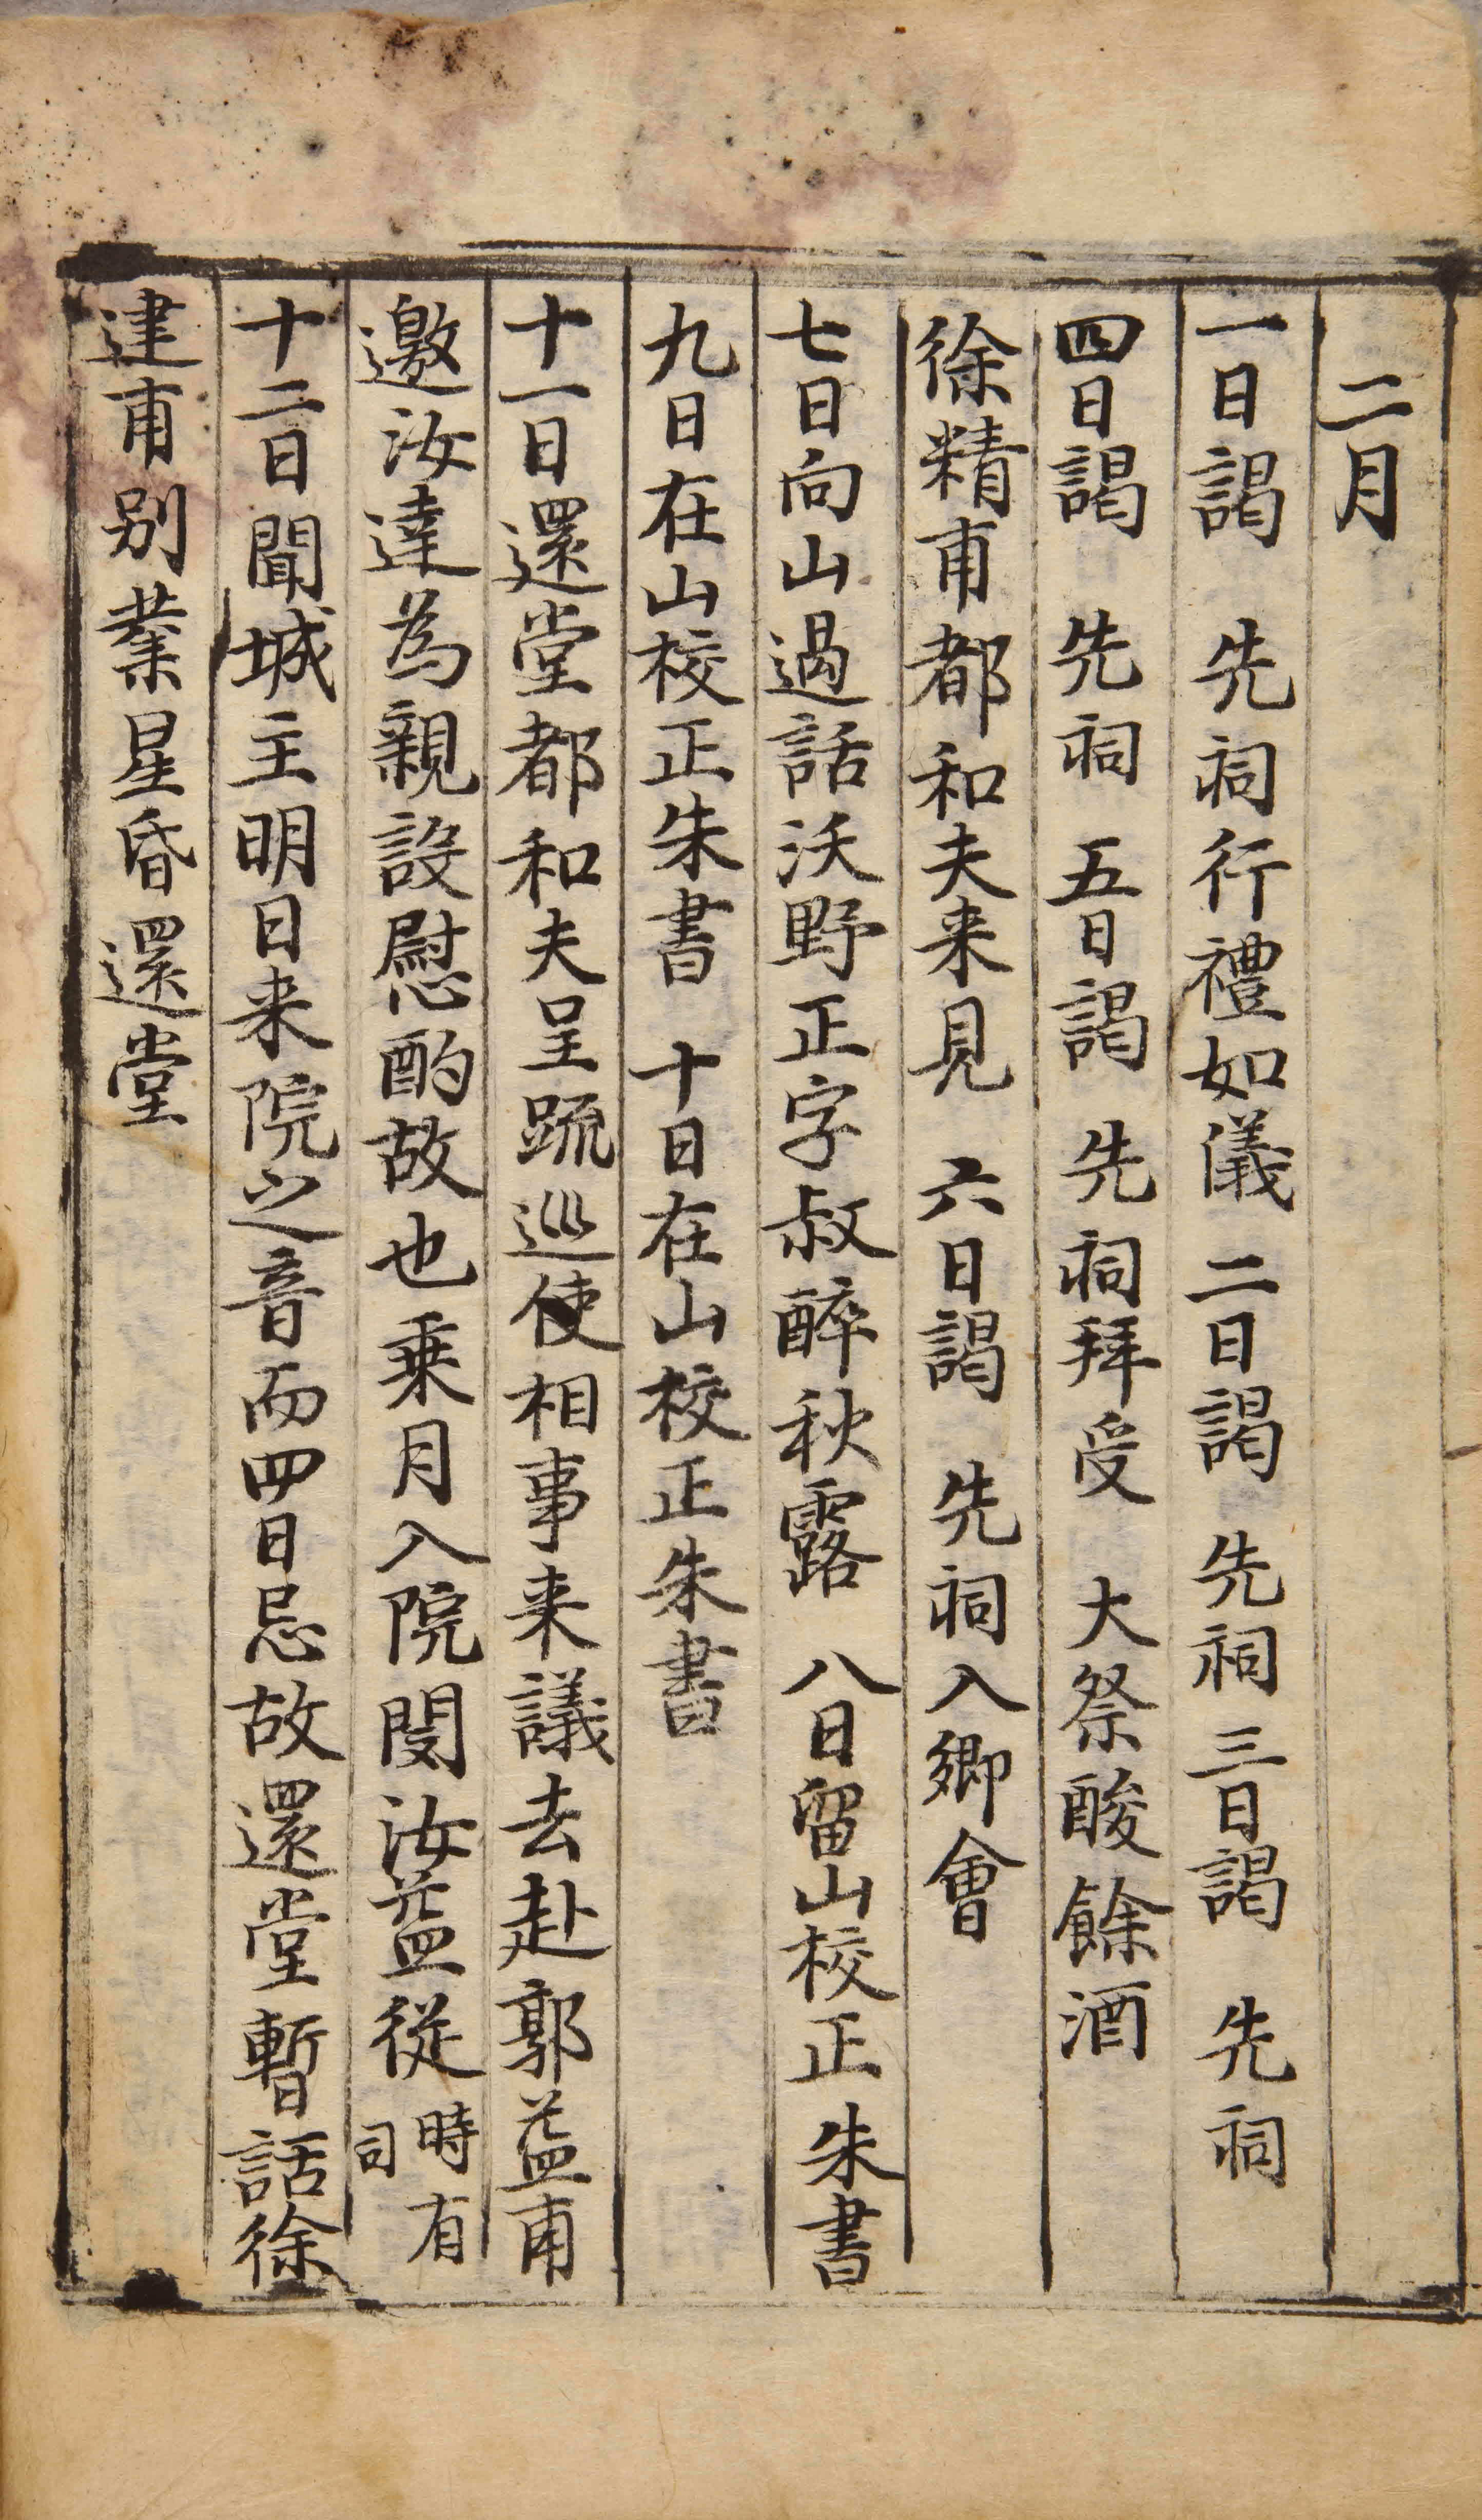 二月
一日謁 先祠行禮如儀 二日謁 先祠 三日謁 先祠
四日謁 先祠 五日謁 先祠拜受 大祭酸餘酒
徐精甫都和夫来見 六日謁 先祠入鄕會
七日向山過話沃野正字叔醉秋露 八日留山校正朱書
九日在山校正朱書 十日在山校正朱書
十一日還堂都和夫呈䟽巡使相事来議去赴郭益甫
邀汝達為親設慰酌故也乗月入院閔汝益從時有司
十二日聞城主明日来院之音而四日忌故還堂暫話徐
建甫别業星昏還堂